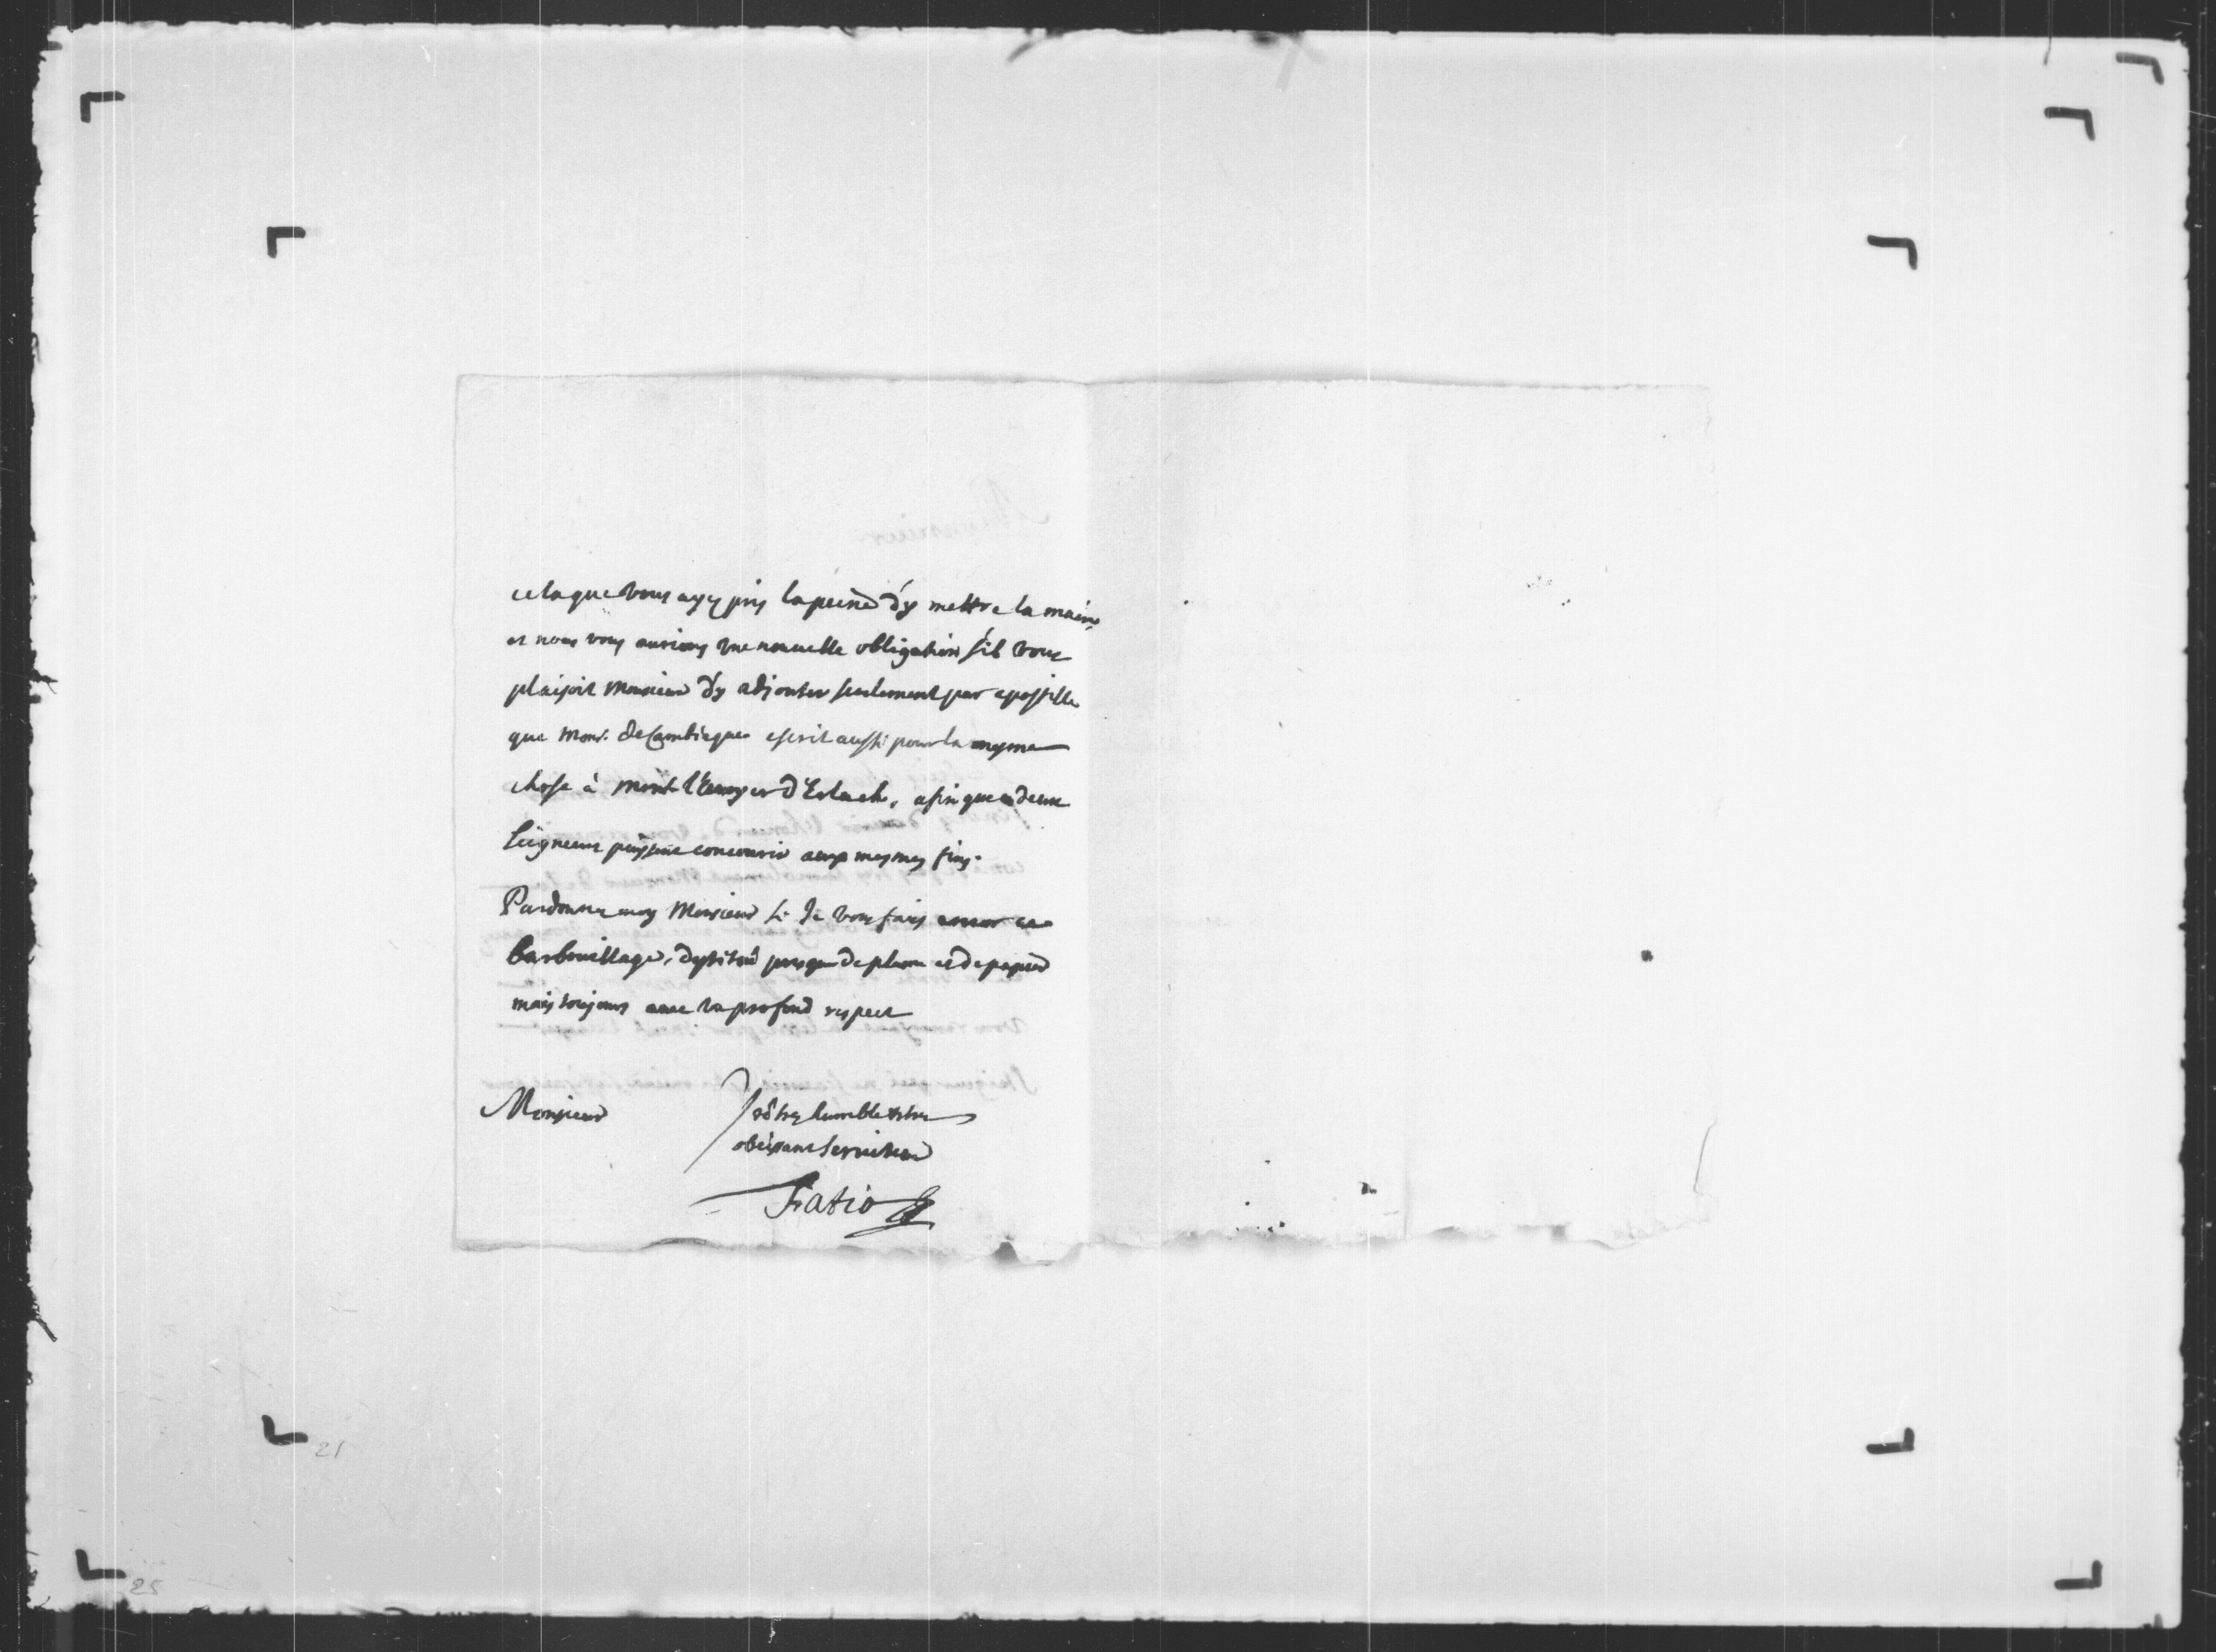 cela que vous ayez pris la peine d'y mettre la main,
et nous vous aurions une nouvelle obligation s'il vous
plaisoit Monsieur d'y adjouter seulement par apostille
que Monsr. de Cambiague escrit aussi pour la mesme
chose à Monsr. d'Erlach, afin que deux
Seigneurs puissent concourir aux mesmes fins.
Pardonnez moy Monsieur si Je vous fais encor ce
barbouillage, destitué presque de plume et de papier
mais toujours avec un profond respect
Monsieur
Votre tres humble et tres
obeissant Serviteur
Fatio
21
25